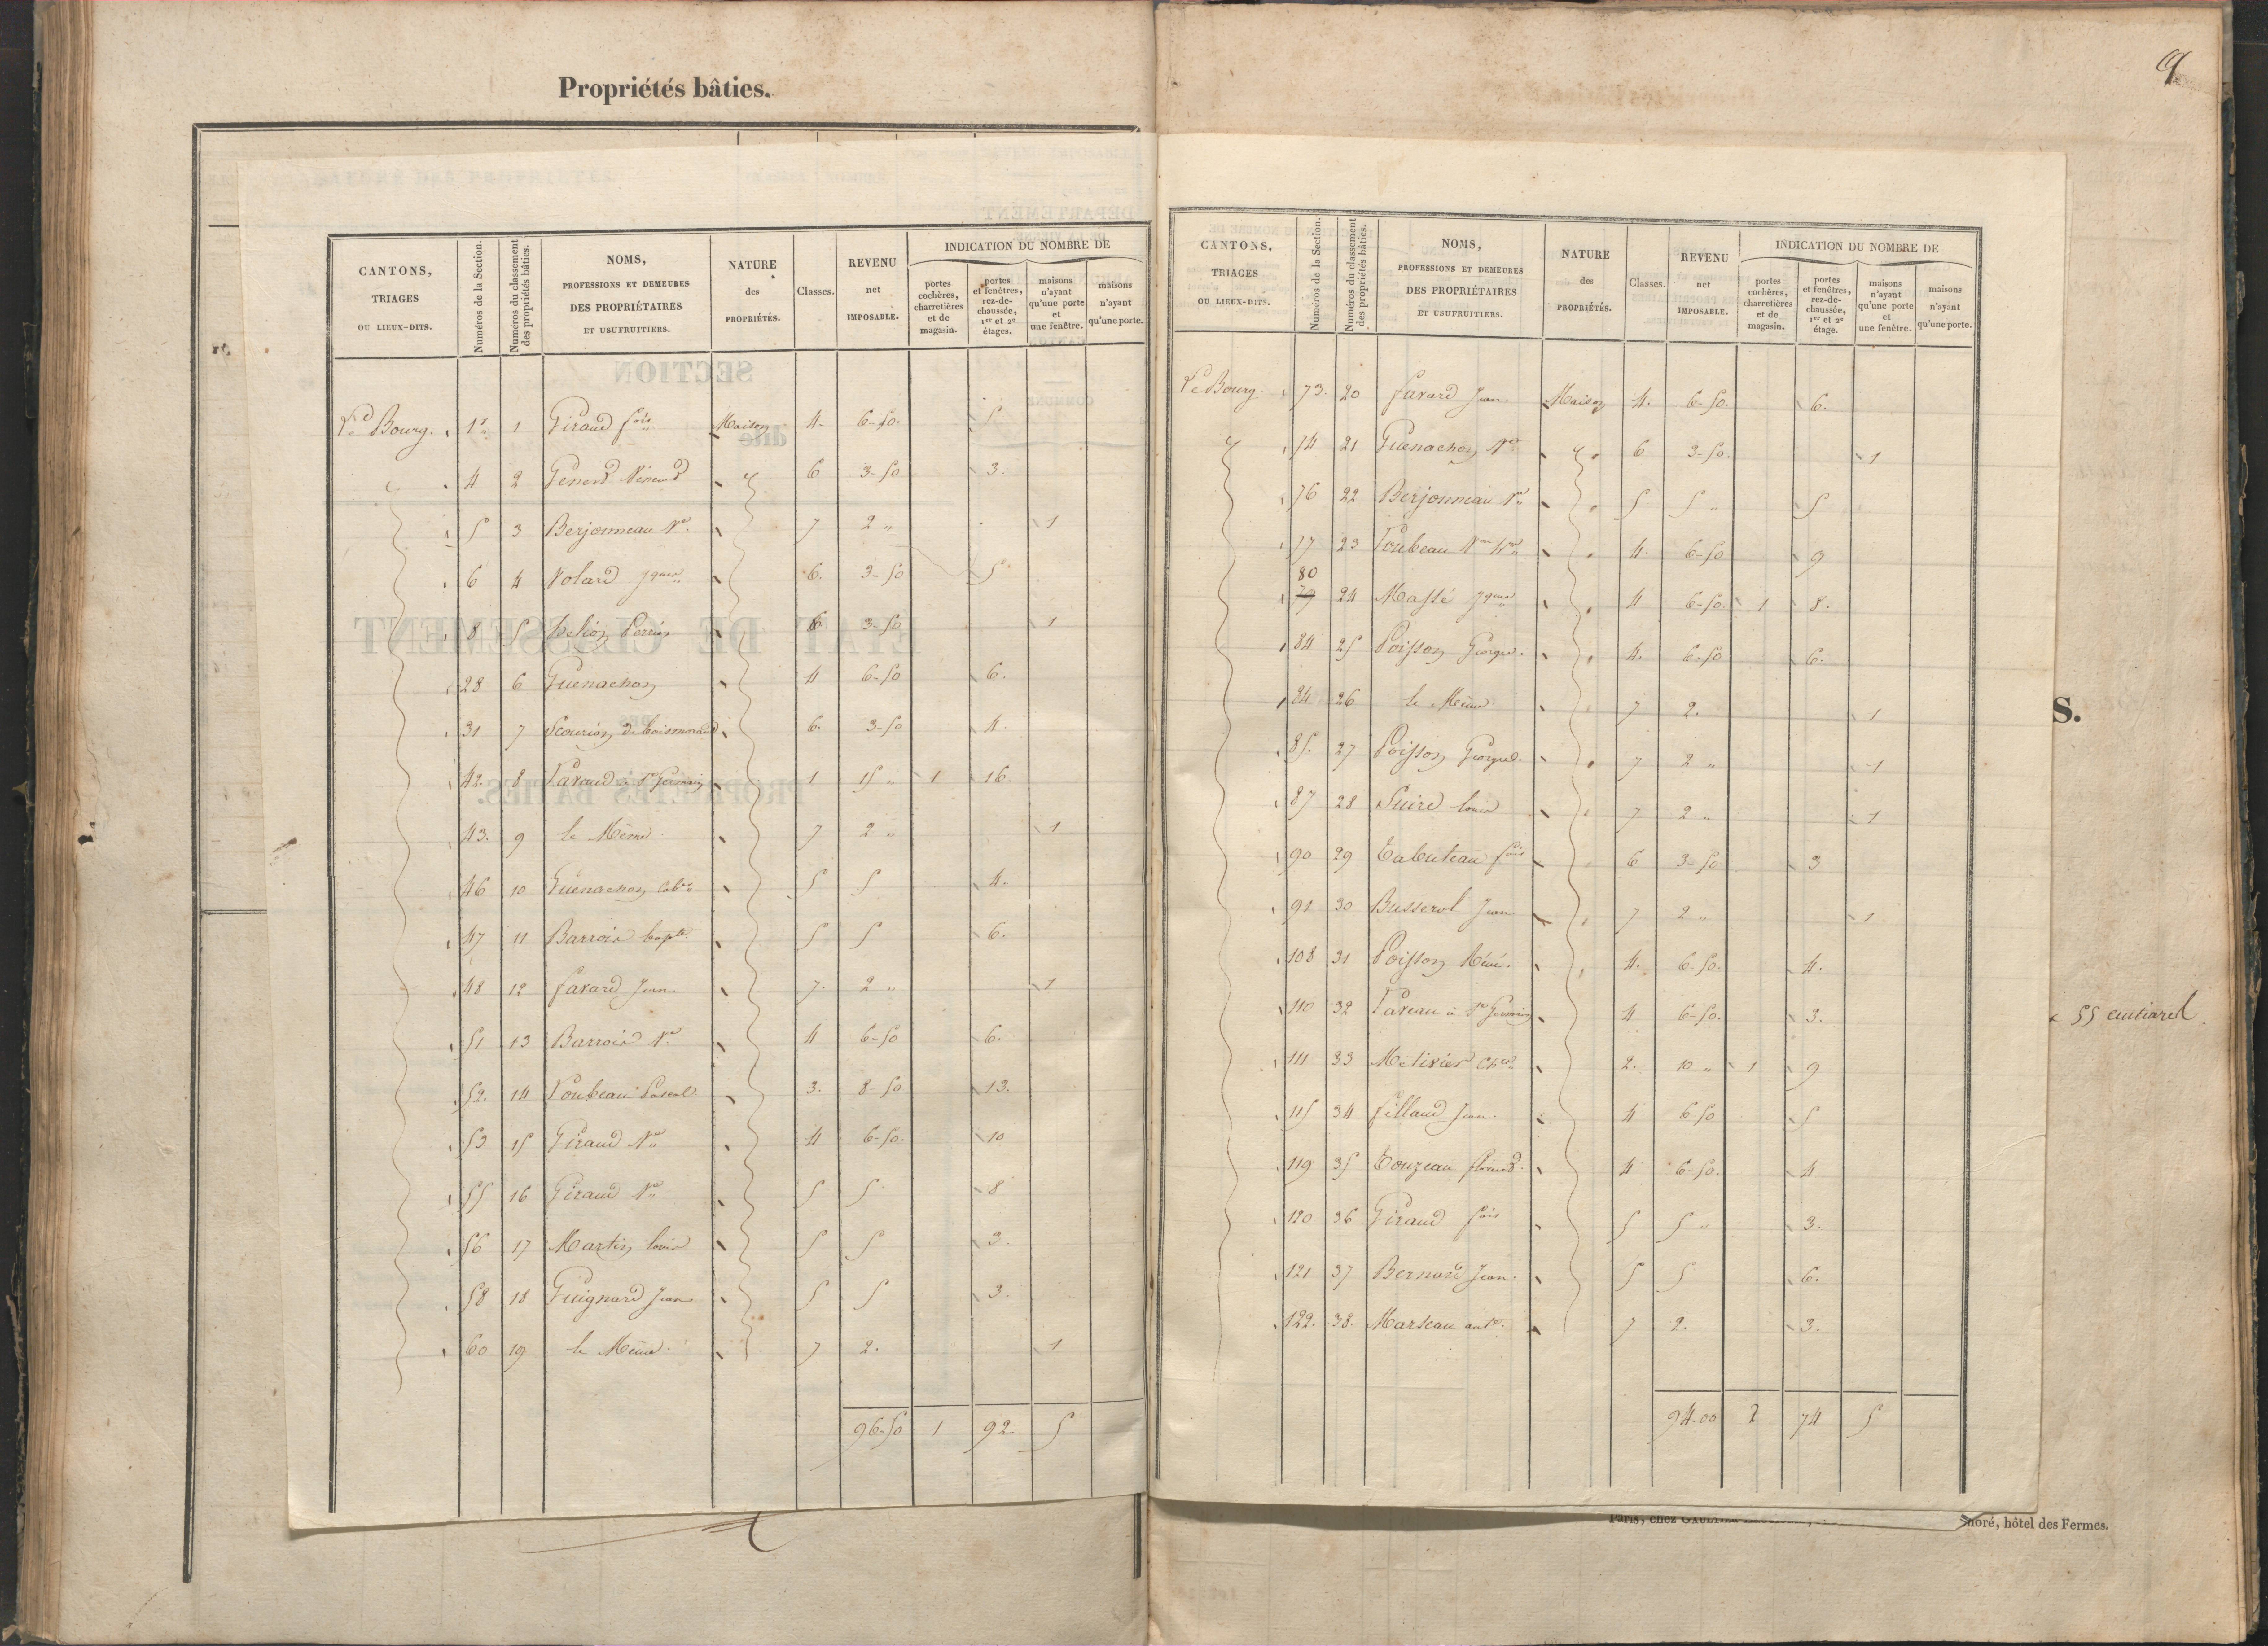 Propriétés bâties.
9
CANTONS, TRIAGES OU LIEUX-DITS. Numéros de la Section. Numéros du classement des propriétés bâties. NOMS, PROFESSIONS ET DEMEURES DES PROPRIÉTAIRES ET USUFRUITIERS. NATURE des PROPRIÉTÉS. Classes. REVENU net IMPOSABLE. INDICATION DU NOMBRE DE
portes cochères, charretières et de magasin. portes et fenêtres, rez-de-chaussée, 1er et 2e étages. maisons n'ayant qu'une porte et une fenêtre. maisons n'ayant qu'une porte.
Le Bourg. 1 Giraud fois Maison 4 6-50. 5
4 2 6 3-50 3.
5 3 Berjonneau Ve. 7 2 " 1
6 4 Nolard Jques 6. 3-50 5
8 5 Perrin 6 3-50 1
28 6 Guenachon 4 6-50 6.
31 7 Scourion de boismorand 6. 3-50 4.
42. 8 à St Germain 1 15 " 1 16.
43. 9 le Même 7 2 " 1
46 10 Guenachon 5 5 4.
47 11 Barrois bapte. 5 5 6.
48 12 favard Jean. 7. 2 " 1
51 13 Barrois Ve 4 6-50 6.
52. 14 Poubeau Pascal 3. 8-50 13.
53 15 Giraud Ve 4 6-50. 10
55 16 Giraud Ve 5 5 8
56 17 Martin louis 5 5 3.
58 18 Guignard Jean 5 5 3.
60 19 le Même. 7 2. 1
96-50 1 92. 5
CANTONS, TRIAGES OU LIEUX-DITS. Numéros de la Section. Numéros du classement des propriétés bâties. NOMS, PROFESSIONS ET DEMEURES DES PROPRIÉTAIRES ET USUFRUITIERS. NATURE des PROPRIÉTÉS. Classes. REVENU net IMPOSABLE. INDICATION DU NOMBRE DE
portes cochères, charretières et de magasin. portes et fenêtres, rez-de-chaussée, 1er et 2e étage. maisons n'ayant qu'une porte et une fenêtre. maisons n'ayant qu'une porte.
Le Bourg. 73. 20 favard Jean Maison 4. 6-50. 6.
74 21 Guenachon Ve 6 3-50. 1
76 22 Berjonneau Ve 5 5 " 5
77 23 Poubeau 4. 6-50 9
80
79 24 Massé Jques 4 6-50. 1 8.
84 25 Poisson George. 4. 6-50 6.
84 26 le Même 7 2. 1
85. 27 Poisson George. 7 2 " 1
87 28 Suire louis 7 2 " 1
90 29 Tabuteau fois 6 3-50 3
91 30 Busserol Jean 7 2 " 1
108 31 Poisson Réné. 4. 6-50. 4.
110 32 à St Germain 4 6-50. 3.
111 33 Métivier Ches 2. 10 " 1 9
115 34 fillaud Jean. 4 6-50 5
119 35 Touzeau 4 6-50. 4
120 36 Giraud fois 5 5 " 3.
121 37 Bernard Jean. 5 5 6.
122. 38. Marteau ante. 7 2. 3.
94.00 2 74 5
S.
55 centiares
Paris, chez
noré, hôtel des Fermes.